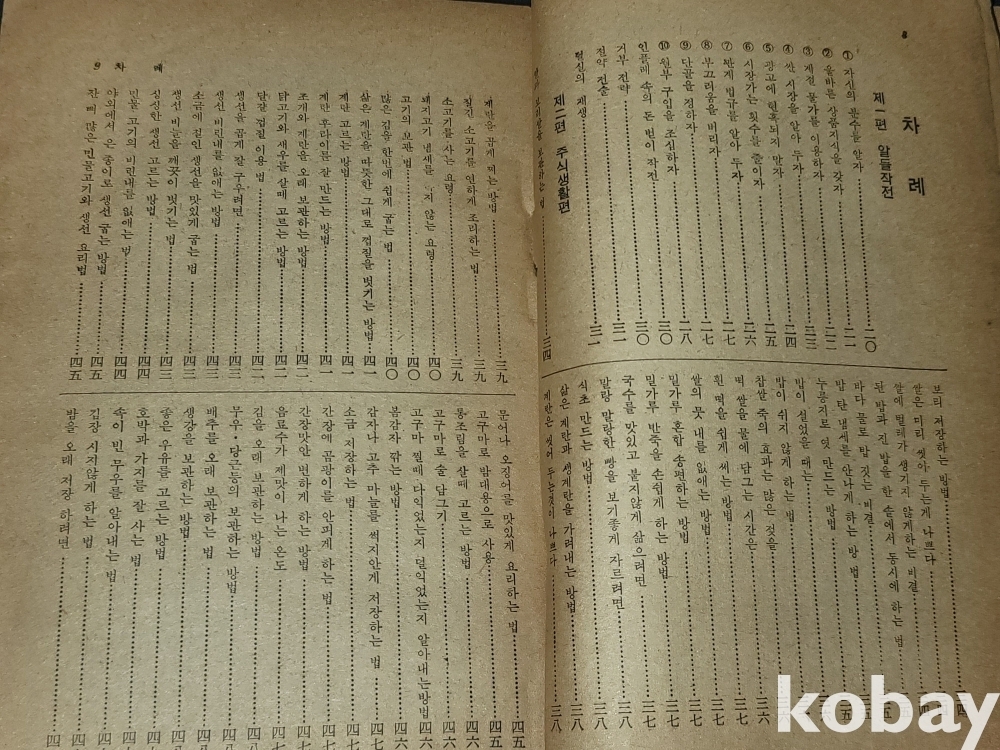 8
차 례
제一편 알뜰작전
① 자신의 분수를 알자 二〇
② 올바른 상품지식을 갖자 二二
③ 계절 물가를 이용하자 二三
④ 싼 시장을 알아 두자 二四
⑤ 광고에 현혹되지 말자 二五
⑥ 시장가는 횟수를 줄이자 二六
⑦ 반계 법규를 알아 두자 二七
⑧ 부끄러움을 버리자 二七
⑨ 단골을 정하자 二八
⑩ 원부 구입을 조심하자 三〇
인플레 속의 돈 번이 작전 三〇
거부 전략 三一
절약 전술 三一
헌신의 재생
제二편 주식생활편
보관하는 법 三四
보리 저장하는 방법
쌀은 미리 씻어 두는게 나쁘다
쌀에 벌레가 생기지 않게하는 비결
된 밥과 진 밥을 한 솥에서 동시에 하는 법
바다 물로 밥 짓는 비결
밥 탄 냄새를 안나게 하는 방법
누룽지로 엿 만드는 방법
밥이 설었을 때는
밥이 쉬지 않게 하는 법
찹쌀 죽의 효과는 많은 것을
떡 쌀을 물에 담그는 시간은 三六
흰 떡을 쉽게 써는 방법 三七
쌀의 뭇 내를 없애는 방법 三七
밀가루 혼합 송편하는 방법 三七
밀가루 반죽을 손쉽게 하는 방법 三七
국수를 맛있고 붙지않게 삶으려면 三七
말랑 말랑한 빵을 보기좋게 자르려면 三八
식초 만드는 방법 三八
삶은 계란과 생계란을 가려내는 방법 三八
계란은 씻어 두는것이 나쁘다 三八
9 차 례
계란을 곱게 깨는 방법 三九
질긴 소고기를 연하게 조리하는 법 三九
소고기를 사는 요령 三九
돼지고기 냄새를 지 않는 요령 四〇
고기의 보관 법 四〇
많은 김을 한번에 쉽게 굽는 법 四〇
삶은 계란을 따뜻한 그대로 껍질을 벗기는 방법 四一
계란 고르는 방법 四一
계란 후라이를 잘 만드는 방법 四一
조개와 계란을 오래 보관하는 방법 四二
닭고기와 새우를 살때 고르는 방법 四二
달걀 껍질 이용 법 四二
생선을 곱게 잘 구우려면 四三
생선 비린내를 없애는 방법 四三
소금에 절인 생선을 맛있게 굽는 법 四三
생선 비늘을 깨끗이 벗기는 법 四三
싱싱한 생선 고르는 방법 四四
민물 고기의 비린내를 없애는 법 四四
야외에서 은 종이로 생선 굽는 방법 四五
잔 뼈 많은 민물고기와 생선 요리법 四五
문어나 오징어를 맛있게 요리하는 법 四五
고구마로 밤대용으로 사용 四五
통조림을 살때 고르는 방법 四六
고구마로 술 담그기 四六
고구마 찔때 다익었는지 덜익었는지 알아내는방법 四六
봄감자 깎는 방법 四六
감자나 고추 마늘를 썩지안게 저장하는 법 四七
소금 저장하는 법 四七
간장에 곰팡이를 안피게 하는 방법
간장맛안 변하게 하는 방법
음료수가 제맛이 나는 온도
김을 오래 보관하는 방법
무우·당근등의 보관하는 방법
배추를 오래 보관하는 법
생강을 보관하는 방법
좋은 우유를 고르는 방법
호박과 가지를 잘 사는 법
속이 빈 무우를 알아내는 법
김장 시지않게 하는 법
밤을 오래 저장 하려면
kobay